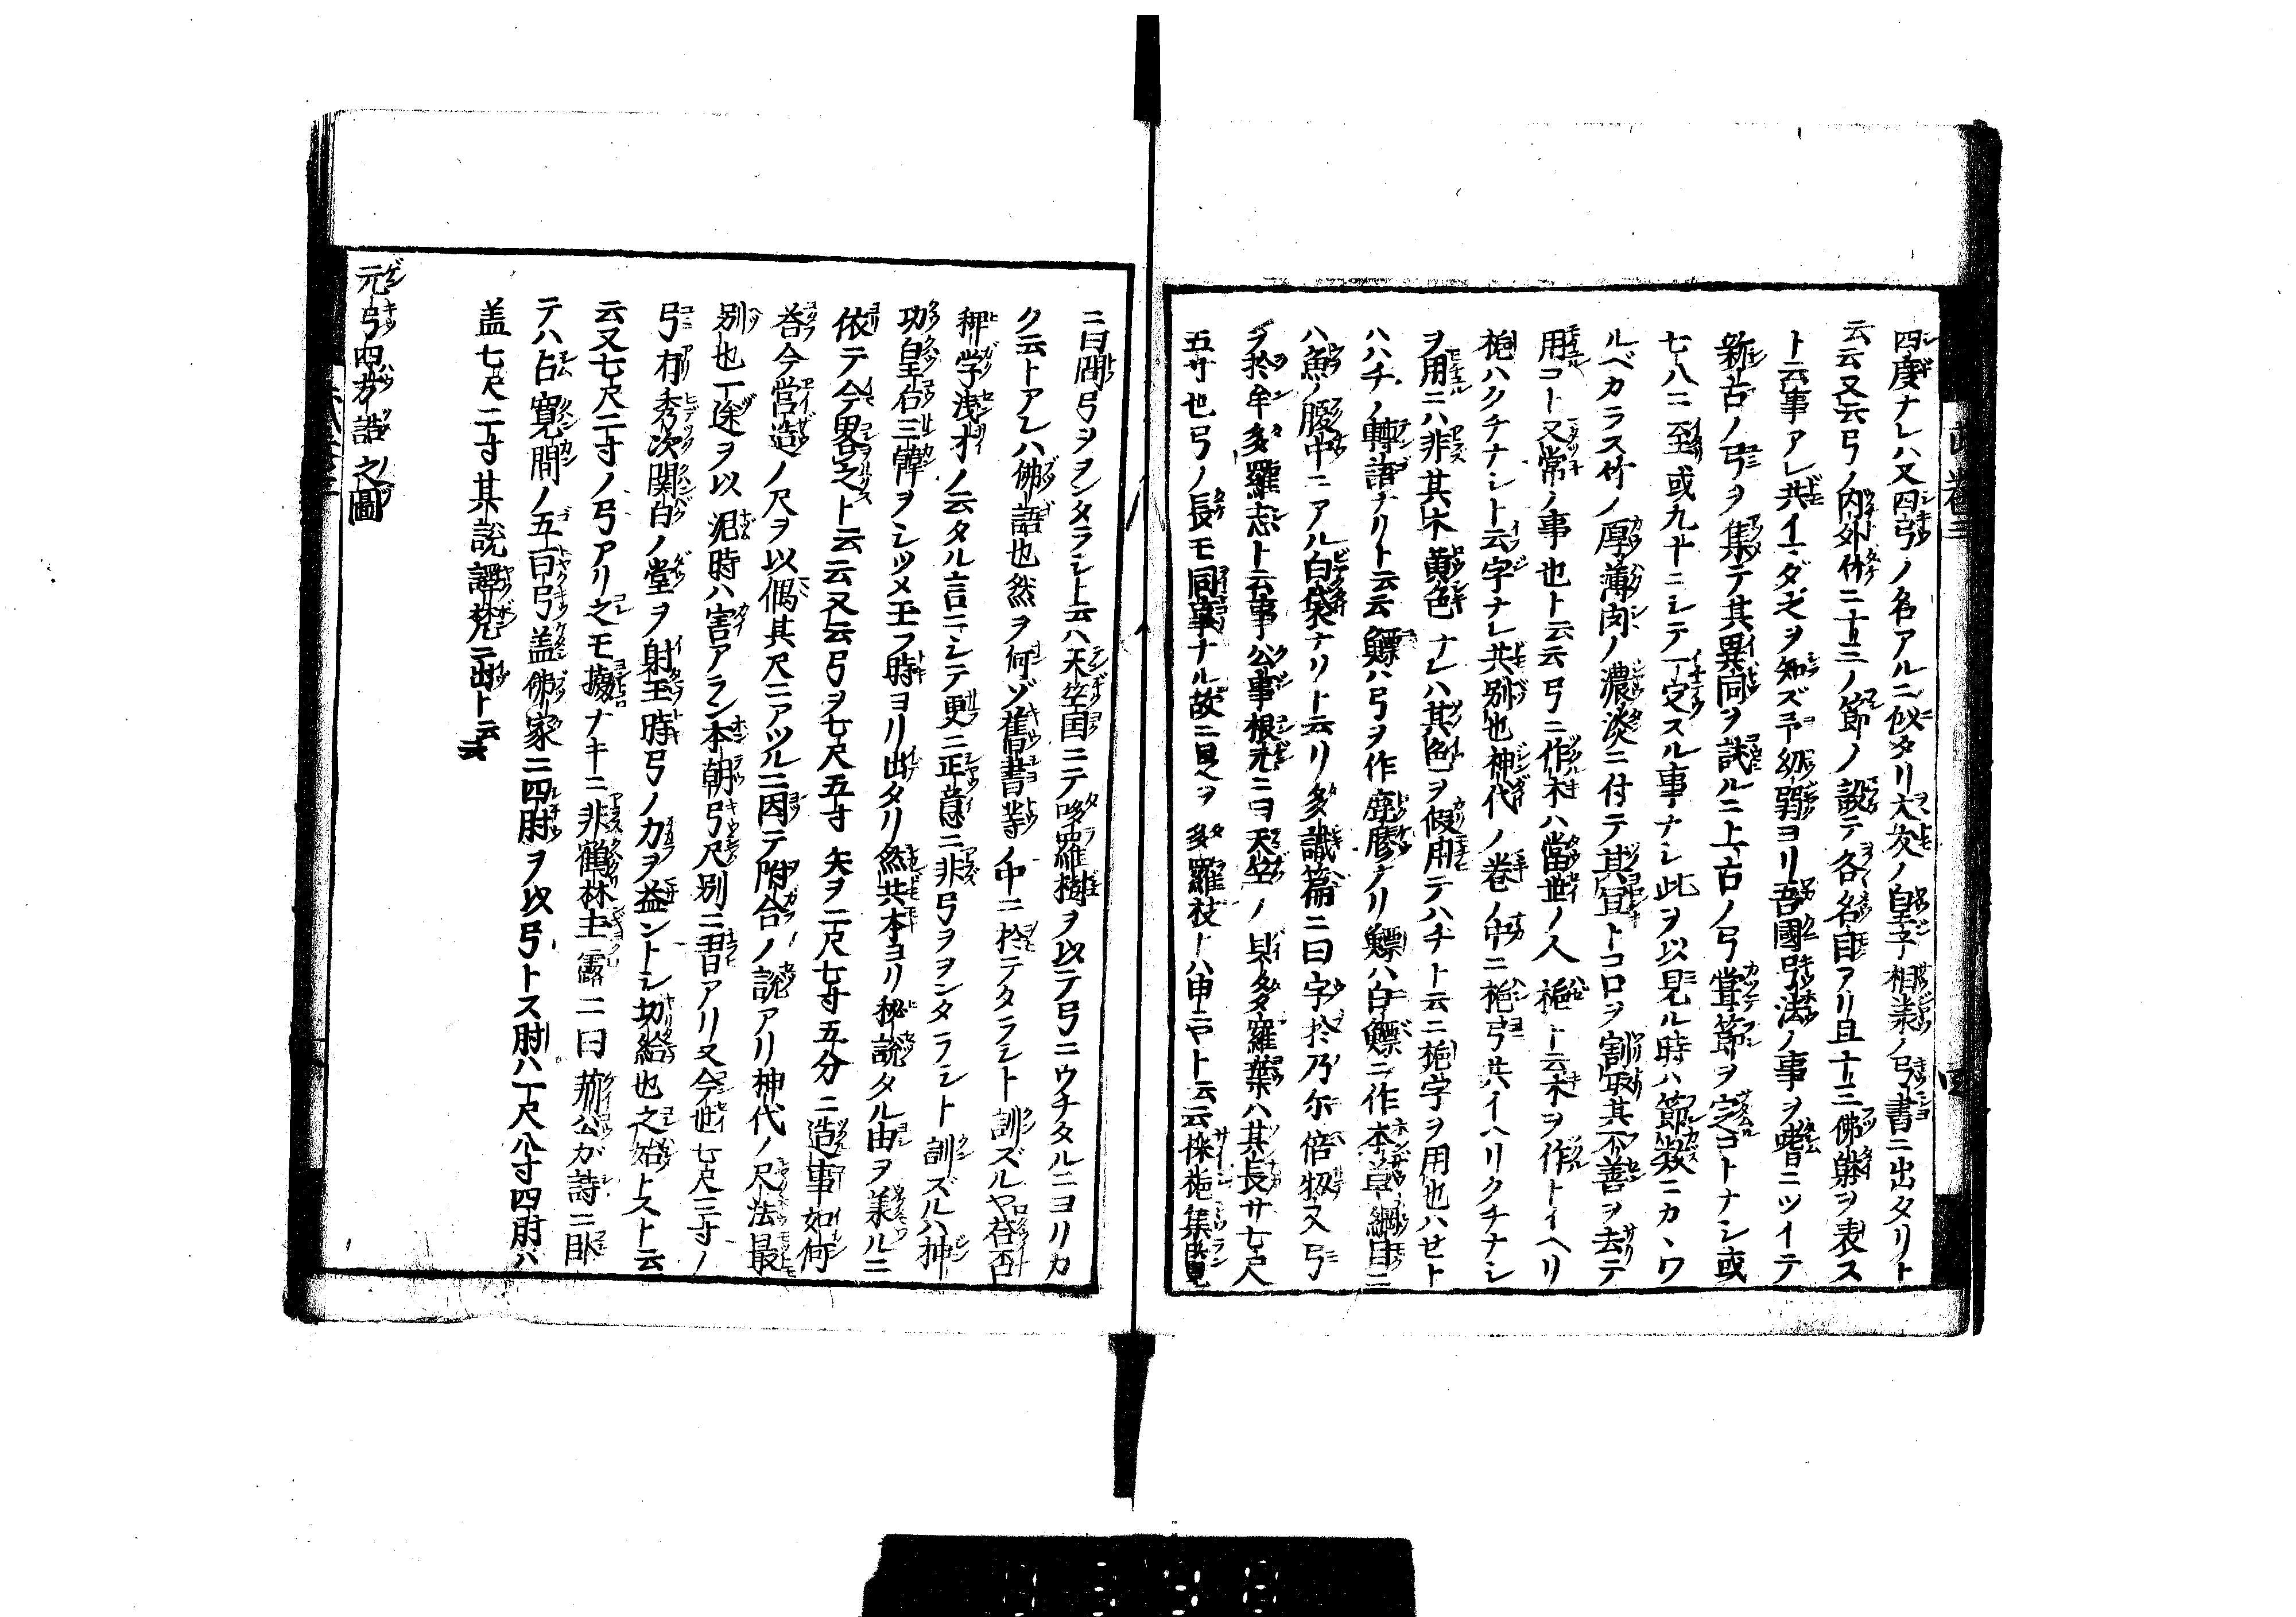 四度ナレハ又四弓ノ名アルニ似タリ大友ノ皇子相業ノ弓書ニ出タリト
云云又云弓ノ内外竹ニ十三ノ節ノ設テ各名目アリ且十三佛躰ヲ表ス
ト云事アレ共イマダ之ヲ知ズ予幼弱ヨリ吾國弓法ノ事ヲ嗜ニツイテ
新古ノ弓ヲ集テ其異同ヲ試ルニ上古ノ弓甞節ヲ定コトナシ或
七八ニ至或九十ニシテ一定スル事ナシ此ヲ以見ル時ハ節数ニカヽワ
ルベカラス竹ノ厚薄肉ノ濃淡ニ付テ其冝トコロヲ割取其不善ヲ去テ
用コト又常ノ事也ト云云弓ニ作木ハ當世ノ人梔ト云木ヲ作トイヘリ
梔ハクチナシト云字ナレ共別也神代ノ巻ノ中ニ梔弓共イヘリクチナシ
ヲ用ニハ非其木黄色ナレハ其色ヲ假用テハヂト云ニ梔字ヲ用也ハせト
ハハチノ轉語ナリト云云鰾ハ弓ヲ作膠ナリ鰾ハ白鰾ニ作本草綱目ニ
ハ魚ノ腹中ニアル白袋ナリト云リ多識篇ニ曰字於乃尓倍
多羅志ト云事公事根元ニ曰天竺ノ貝多羅葉ハ其長サ七尺
五寸也弓ノ長モ同事ナル故ニ是ヲ多羅枝トハ申ニヤト云云
ニ曰問弓ヲヲンタラシト云ハ天竺国ニテ哆羅樹ヲ以テ弓ニウチタルニヨリカ
ク云トアレハ佛語也然ヲ何ゾ舊書等ノ中ニ於テタラシト訓ズルヤ荅否
稗学浅才ノ云タル言ニシテ更ニ正意ニ非弓ヲヲンタラシト訓ズルハ神
功皇后三韓ヲシツメ玉フ時ヨリ出タリ然共本ヨリ秘説タル由ヲ業ルニ
依テ今畧之ト云云又云弓ヲ七尺五寸矢ヲ二尺七寸五分ニ造事如何
荅今営造ノ尺ヲ以偶其尺ニアツルニ因テ附合ノ説アリ神代ノ尺法最
別也丁途ヲ以泥時ハ害アラン本朝弓尺別ニ習アリ又今世七尺三寸ノ
弓有秀次関白ノ堂ヲ射玉時弓ノ力ヲ益ントシ切給也之始トスト云
云又七尺二寸ノ弓アリ之モ據ナキニ非鶴林玉露ニ曰荊公ガ詩ニ卧
テハ占寛間ノ五百弓盖佛家ニ四肘ヲ以弓トス肘ハ丁尺八寸四肘ハ
盖七尺二寸其説譯梵ニ出ト云云
元弓四方詰之圖